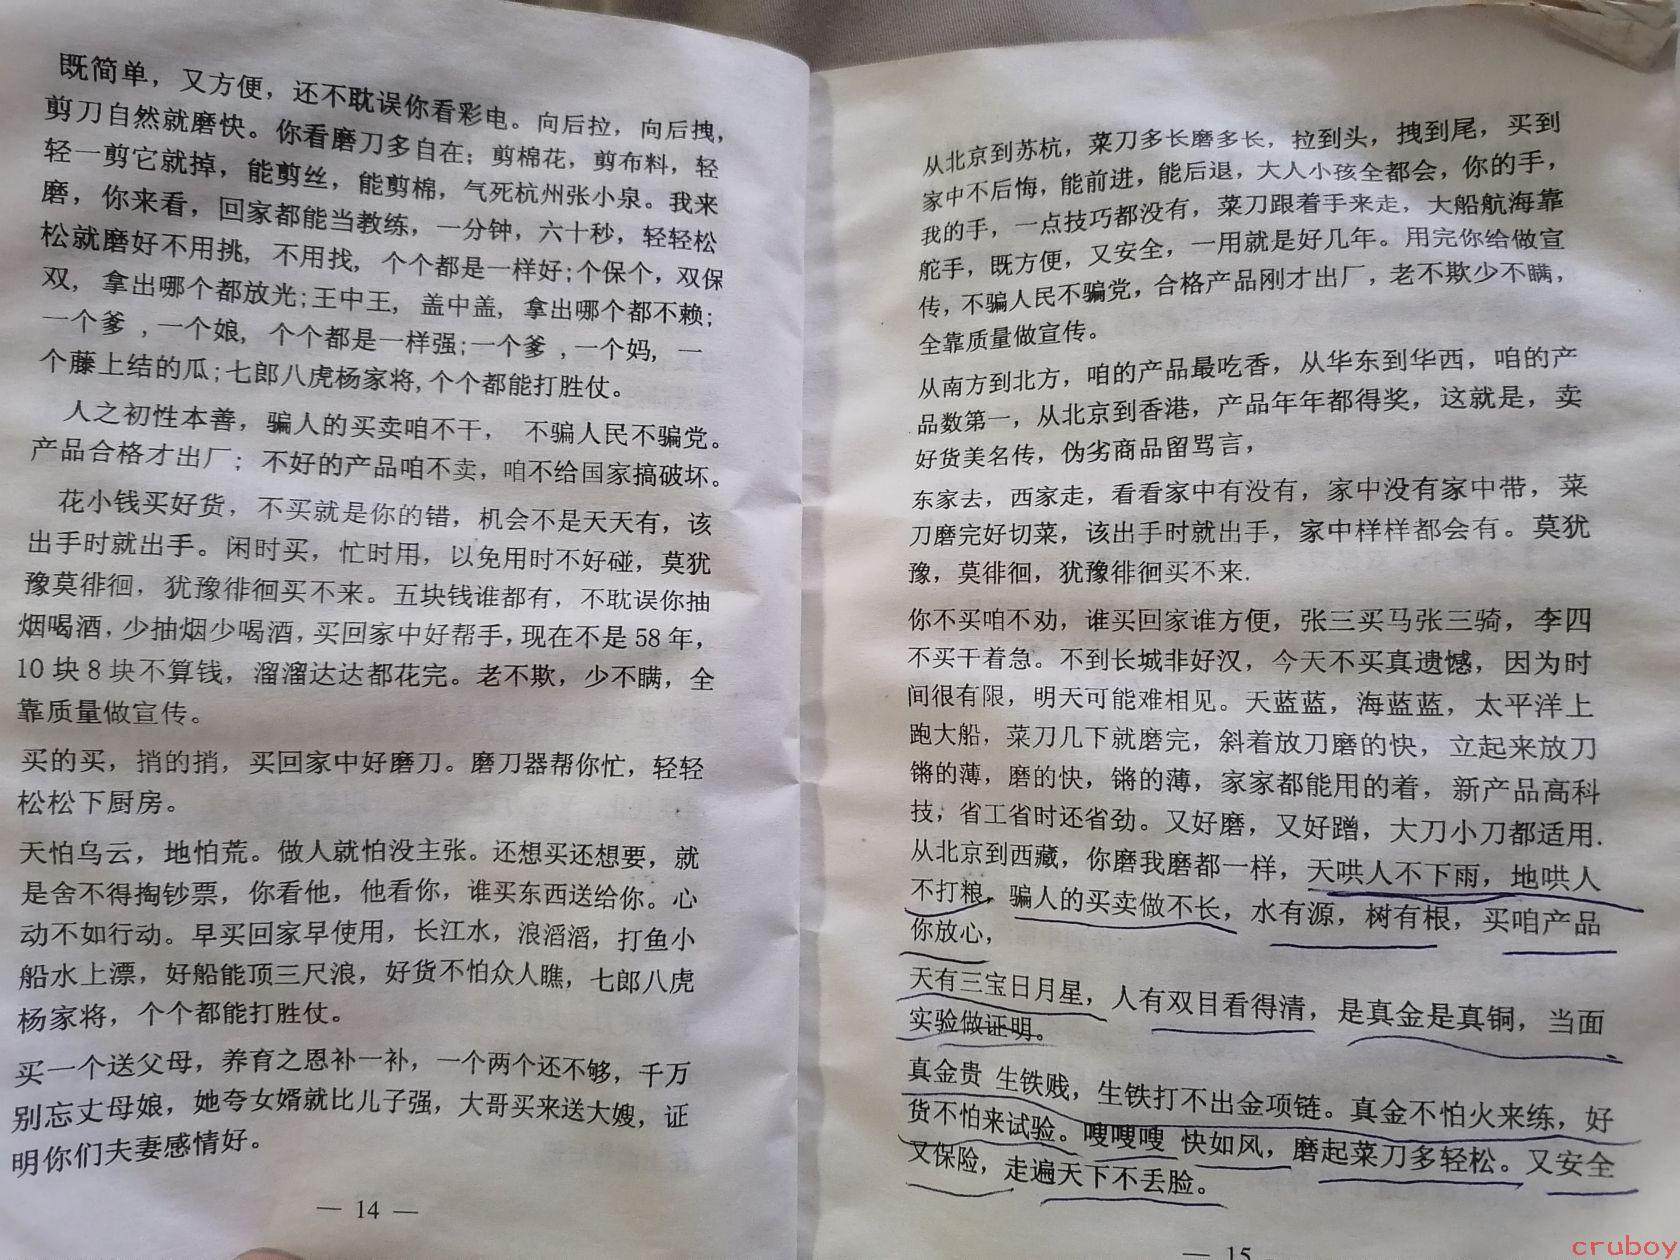 既简单，又方便，还不耽误你看彩电。向后拉，向后拽，
剪刀自然就磨快。你看磨刀多自在；剪棉花，剪布料，轻
轻一剪它就掉，能剪丝，能剪棉，气死杭州张小泉。我来
磨，你来看，回家都能当教练，一分钟，六十秒，轻轻松
松就磨好不用挑，不用找，个个都是一样好;个保个，双保
双，拿出哪个都放光;王中王，盖中盖，拿出哪个都不赖;
一个爹，一个娘，个个都是一样强;一个爹，一个妈，一
个藤上结的瓜;七郎八虎杨家将,个个都能打胜仗。
人之初性本善，骗人的买卖咱不干， 不骗人民不骗党。
产品合格才出厂；不好的产品咱不卖，咱不给国家搞破坏。
花小钱买好货，不买就是你的错，机会不是天天有，该
出手时就出手。闲时买，忙时用，以免用时不好碰，莫犹
豫莫徘徊，犹豫徘徊买不来。五块钱谁都有，不耽误你抽
烟喝酒，少抽烟少喝酒，买回家中好帮手，现在不是58年，
10块8块不算钱，溜溜达达都花完。老不欺，少不瞒，全
靠质量做宣传。
买的买，捎的捎，买回家中好磨刀。磨刀器帮你忙，轻轻
松松下厨房。
天怕乌云，地怕荒。做人就怕没主张。还想买还想要，就
是舍不得掏钞票，你看他，他看你，谁买东西送给你。心
动不如行动。早买回家早使用，长江水，浪滔滔，打鱼小
船水上漂，好船能顶三尺浪，好货不怕众人瞧，七郎八虎
杨家将，个个都能打胜仗。
买一个送父母，养育之恩补一补，一个两个还不够，千万
别忘丈母娘，她夸女婿就比儿子强，大哥买来送大嫂，证
明你们夫妻感情好。
— 14 —
从北京到苏杭，菜刀多长磨多长，拉到头，拽到尾，买到
家中不后悔，能前进，能后退，大人小孩全都会，你的手，
我的手，一点技巧都没有，菜刀跟着手来走，大船航海靠
舵手，既方便，又安全，一用就是好几年。用完你给做宣
传，不骗人民不骗党，合格产品刚才出厂，老不欺少不瞒，
全靠质量做宣传。
从南方到北方，咱的产品最吃香，从华东到华西，咱的产
品数第一，从北京到香港，产品年年都得奖，这就是，卖
好货美名传，伪劣商品留骂言，
东家去，西家走，看看家中有没有，家中没有家中带，菜
刀磨完好切菜，该出手时就出手，家中样样都会有。莫犹
豫，莫徘徊，犹豫徘徊买不来.
你不买咱不劝，谁买回家谁方便，张三买马张三骑，李四
不买干着急。不到长城非好汉，今天不买真遗憾，因为时
间很有限，明天可能难相见。天蓝蓝，海蓝蓝，太平洋上
跑大船，菜刀几下就磨完，斜着放刀磨的快，立起来放刀
锵的薄，磨的快，锵的薄，家家都能用的着，新产品高科
技，省工省时还省劲。又好磨，又好蹭，大刀小刀都适用.
从北京到西藏，你磨我磨都一样，天哄人不下雨，地哄人
不打粮，骗人的买卖做不长，水有源，树有根，买咱产品
你放心，
天有三宝日月星，人有双目看得清，是真金是真铜，当面
实验做证明。
真金贵 生铁贱，生铁打不出金项链。真金不怕火来练，好
货不怕来试验。嗖嗖嗖 快如风，磨起菜刀多轻松。又安全
又保险，走遍天下不丢脸。
— 15
cruboy